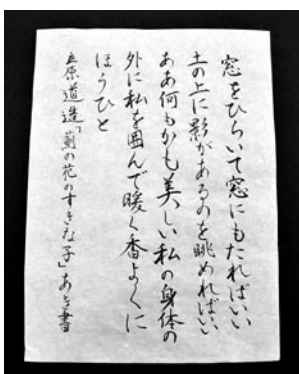 窓をひらいて窓にもたればいい
土の上に影があるのを眺めればいい
ああ何もかも美しい私の身体の
外に私を囲んで暖く香よくに
ほうひと
立原道造「薊の花のすきな子」あと書